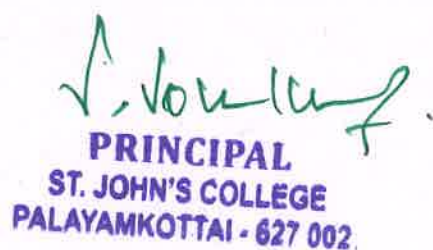 PRINCIPAL
ST. JOHN'S COLLEGE
PALAYAMKOTTAI - 627 002.